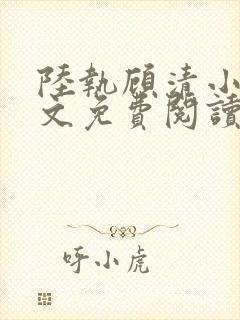 陸執顧清小
文免費閱讀
呀小虎